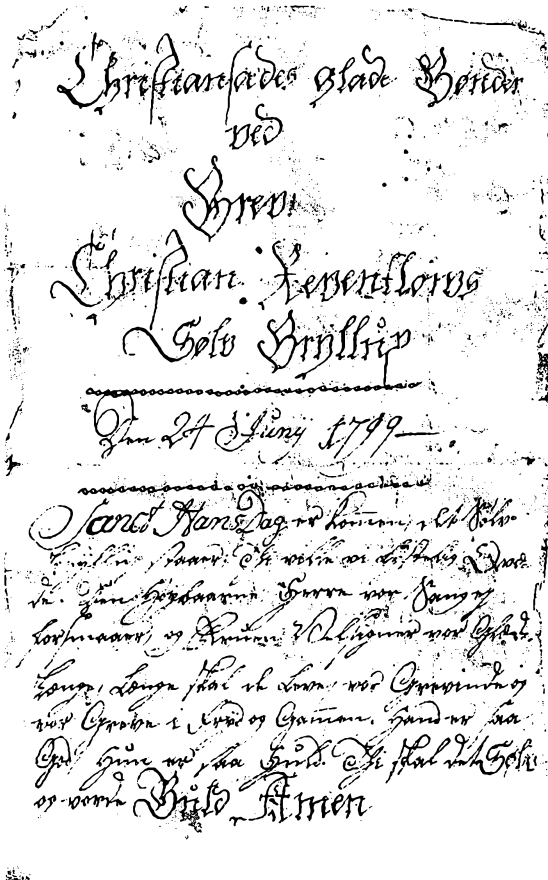 Christiansædes glade Bønder
ved
Greve
Christian Reventlows
Sølv Bryllup
Den 24 Juny 1799
Sanct Hans Dag er kommen, det Sølv
Bryllup staaer. Thi ville vi lystelig Qvæ
de. Den Høybaarne Herre vor Sang ej
forsmaaer, og Fruen Velsigner vor Glæde.
Længe, længe skal de leve, vor Grevinde og
vor Greve i Fryd og Gammen. Hand er saa
God Hun er saa Huld. Thi skal det Sølv
og vorde Guld Amen